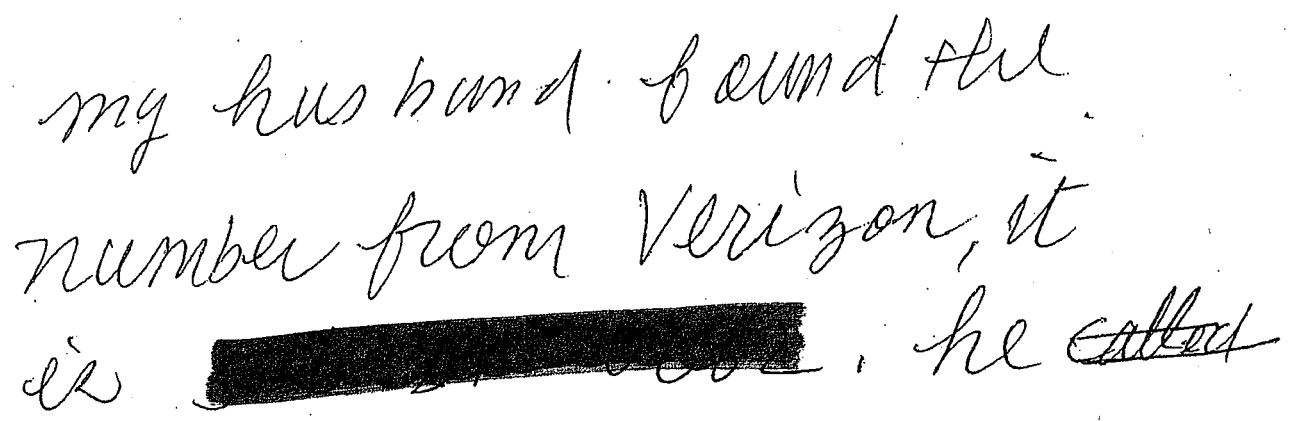 my husband found the
number from Verizon, it
is . he called